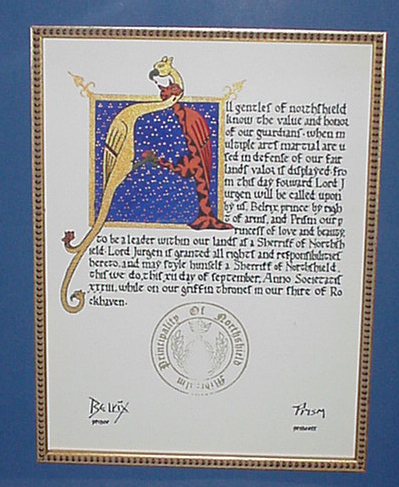 All gentles of northshield
know the value and honor
of our guardians. when m
ultiple arts martial are u
sed in defense of our fair
lands valor is displayed. fro
m this day forward Lord J
urgen will be called upon
by us, Belrix prince by righ
t of arms, and Prism our p
rincess of love and beauty,
to be a leader within our lands as a Sherriff of Northsh
ield. Lord Jurgen is granted all rights and responsibilities
hereto, and may style himself a Sherriff of Northshield.
this we do, this, day of september, Anno Societatis
XXXIII, while on our griffin thrones in our shire of Ro
ckhaven.
Principality Of Northshield
Belrix
prince
Prism
princess